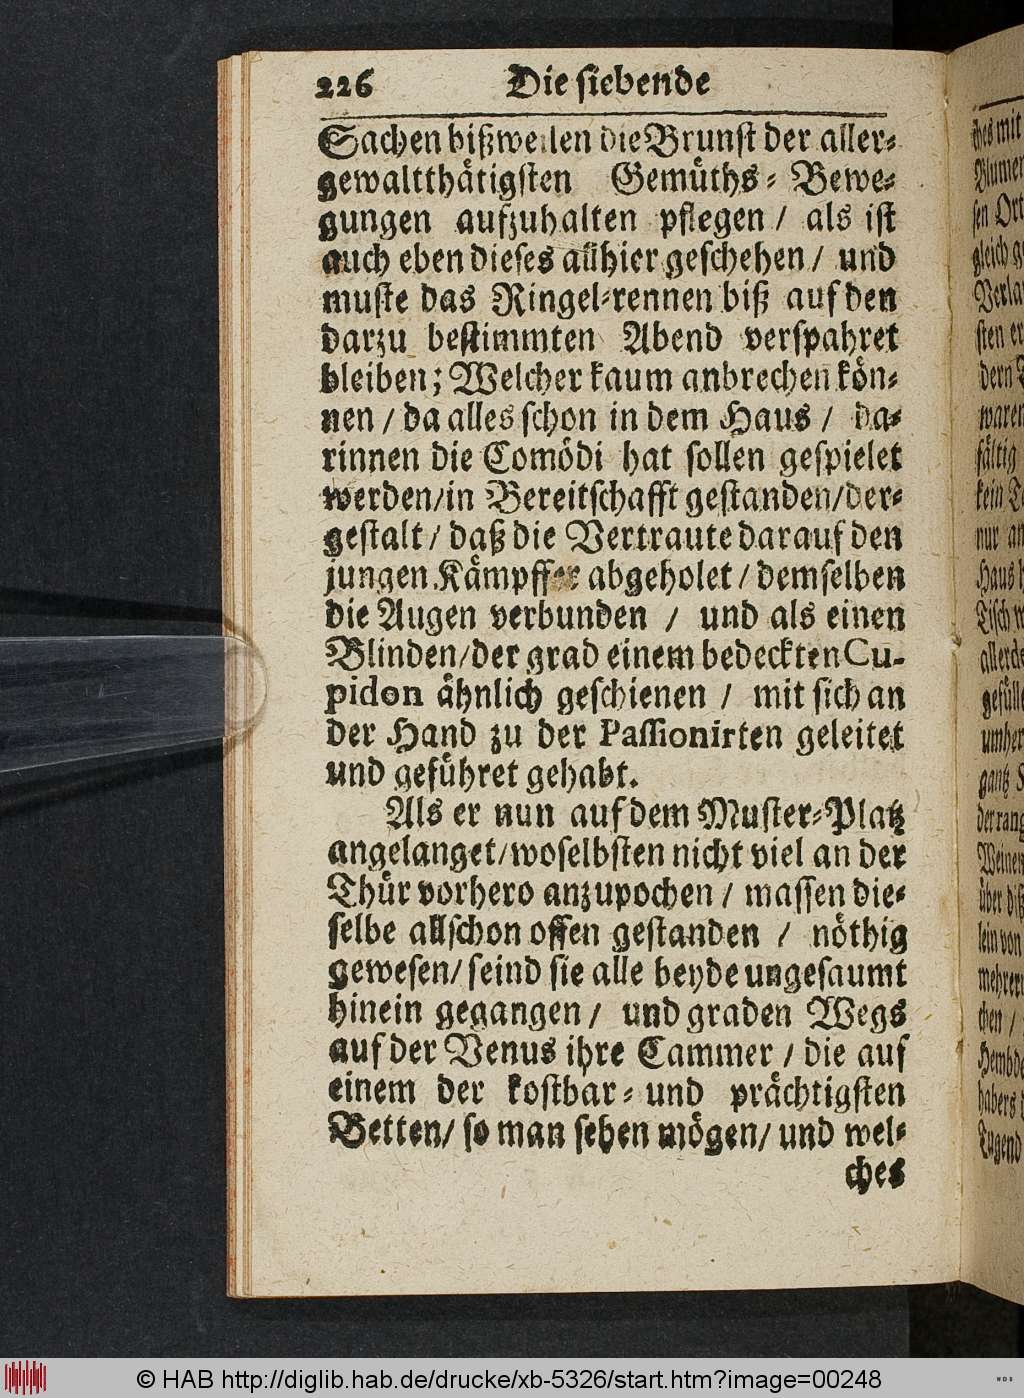 226 Die siebende
Sachen bißweilen die Brunst der aller-
gewaltthätigsten Gemüths- Bewe-
gungen aufzuhalten pflegen / als ist
auch eben dieses allhier geschehen / und
muste das Ringel-rennen biß auf den
darzu bestimmten Abend verspahret
bleiben; Welcher kaum anbrechen kön-
nen / da alles schon in dem Haus / da-
rinnen die Comödi hat sollen gespielet
werden/in Bereitschafft gestanden/der-
gestalt / daß die Vertraute darauf den
jungen Kämpffer abgeholet / demselben
die Augen verbunden / und als einen
Blinden/der grad einem bedeckten Cu-
pidon ähnlich geschienen / mit sich an
der Hand zu der Passionirten geleitet
und geführet gehabt.
Als er nun auf dem Muster-Platz
angelanget/woselbsten nicht viel an der
Thür vorhero anzupochen / massen die-
selbe allschon offen gestanden / nöthig
gewesen/ seind sie alle beyde ungesaumt
hinein gegangen / und graden Wegs
auf der Venus ihre Cammer / die auf
einem der kostbar- und prächtigsten
Betten/ so man sehen mögen/ und wel-
ches
ches mit
Blumen
sen Ort
gleich
sten
dern
waren
fältig
kein
nur
Haus
Tisch
umher
gantz
Weinen
über
lein von
chen /
habers
Tugend
© HAB http://diglib.hab.de/drucke/xb-5326/start.htm?image=00248